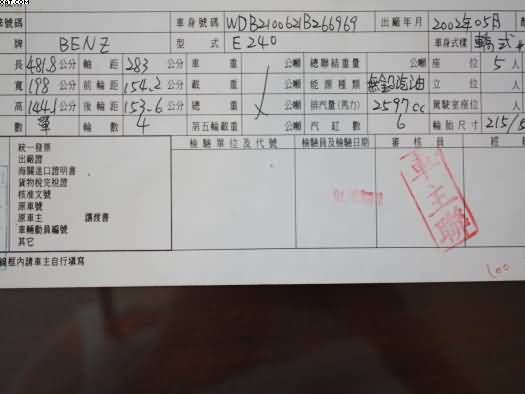 號碼 車身號碼 WDB2100621B266969 出廠年月 2002年05月
牌 BENZ 型式 E240 車身式樣 轎式
長 481.8 公分 軸距 283 公分 車重 公噸 總聯結重量 公噸 座位 5人
寬 198 公分 前輪距 154.2 公分 載重 公噸 能源種類 無鉛汽油 立位 人
高 144.1 公分 後輪距 153.6 公分 總重 公噸 排汽量(馬力) 2597.cc 駕駛室座位 人
數 單 輪數 4 第五輪載重 公噸 汽缸數 6 輪胎尺寸 215/5
統一發票
出廠證
海關進口證明書
貨物稅完稅證
核准文號
原車號
原車主 讓授書
車輛動員編號
其它
檢驗單位及代號 檢驗員及檢驗日期 審核員
車主聯
線框內請車主自行填寫
100